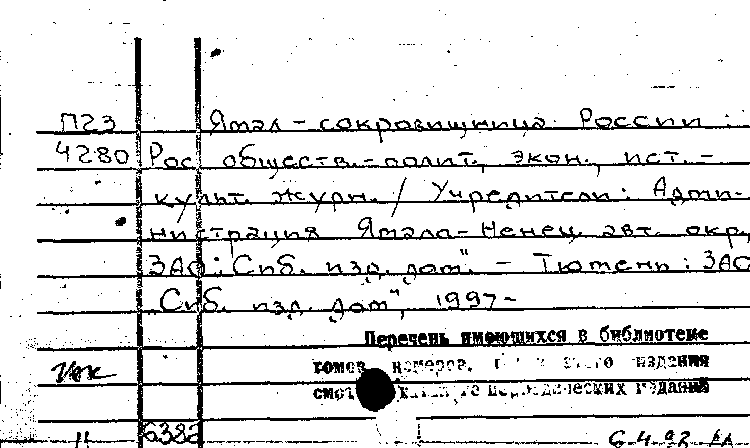 П23 Ямал – сокровищница России :
4280 Рос. обществ.-полит., экон., ист.-
культ. журн. / Учредители: Адми-
нистрация Ямало-Ненец. авт. окр,
ЗАО: Спб. изд. дом". – Тюмень : ЗАО
„Спб. изд. дом", 1997-
Перечень имеющихся в библиотеке
томов, номеров, этого издания
смот каталоге периодических изданий
6382